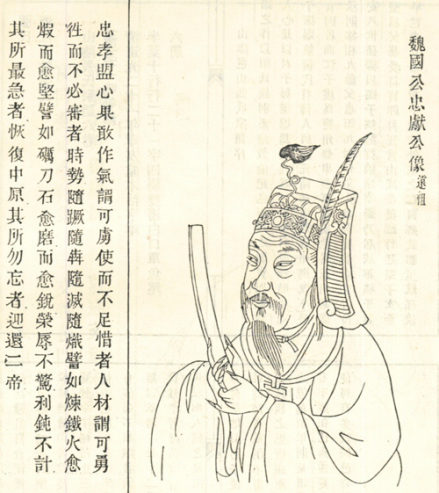 魏國公忠獻公像
忠孝盟心果敢作氣謂可虜使而不足惜者人材謂可勇
徃而不必審者時勢隨蹶隨犇隨減隨熾譬如煉鐵火愈
煆而愈堅譬如礪刀石愈磨而愈銳榮辱不驚利鈍不計
其所最急者恢復中原其所勿忘者迎還二帝